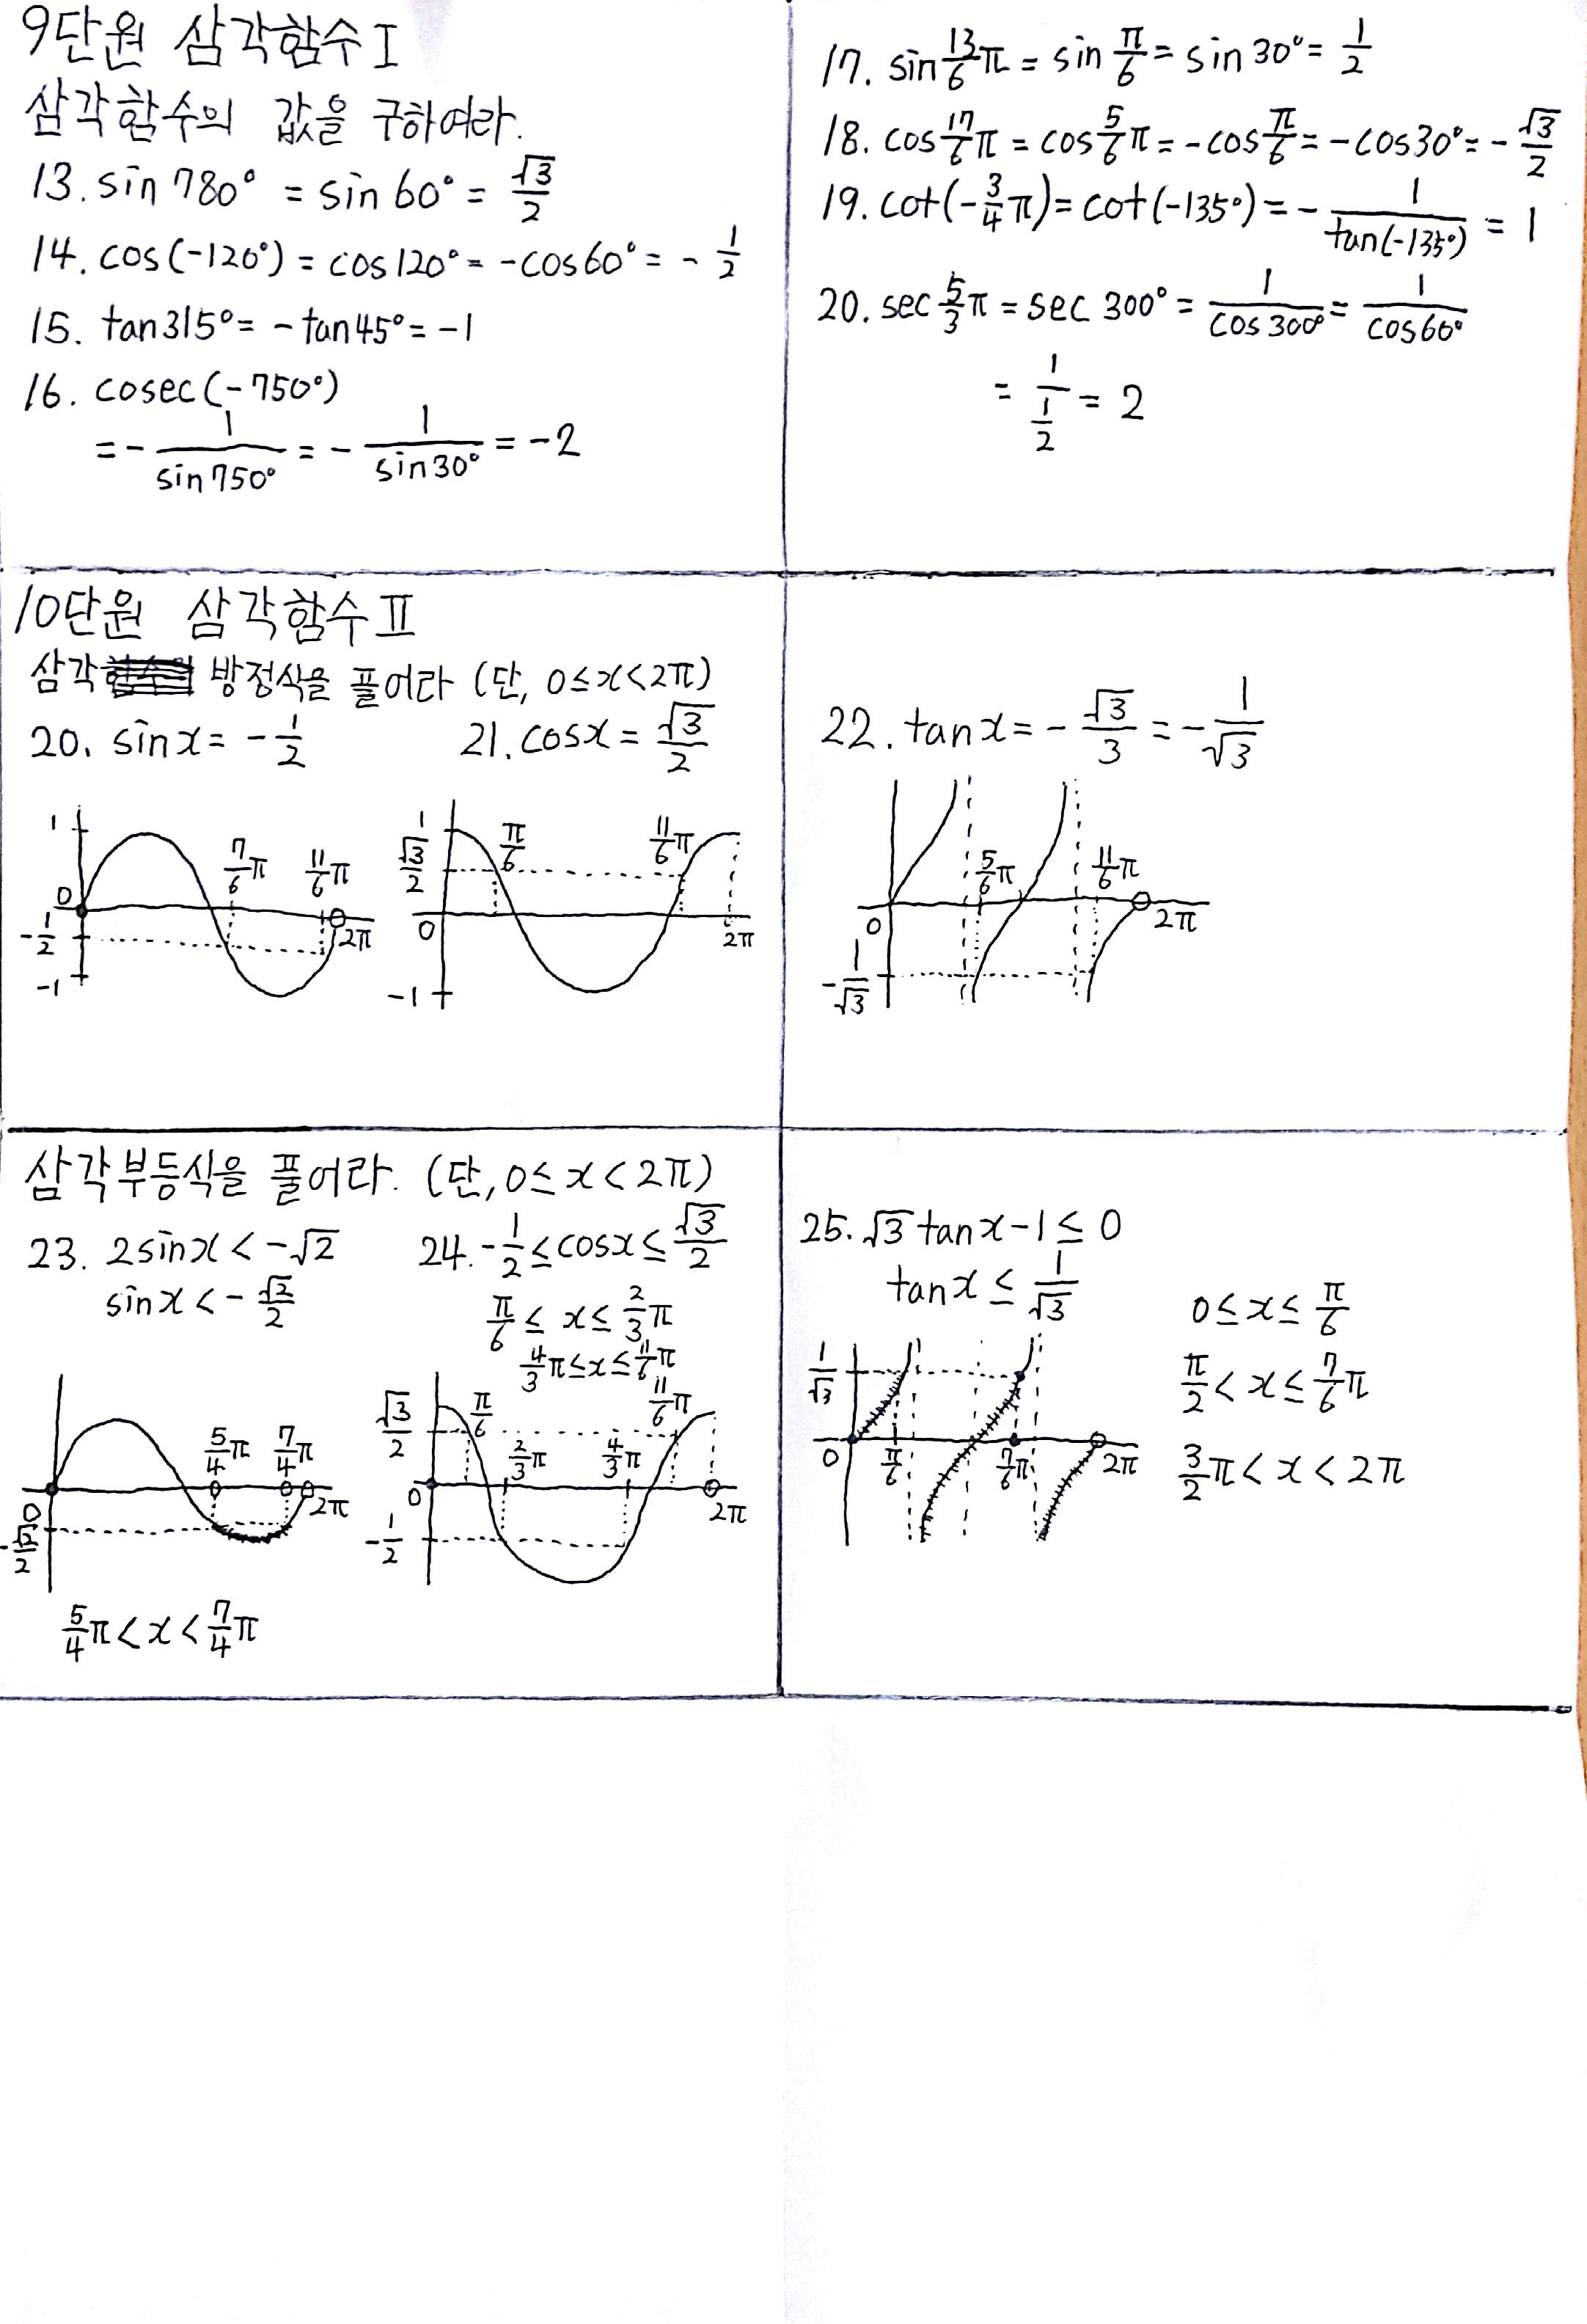 9단원 삼각함수 I
삼각함수의 값을 구하여라.
13. sin 780° = sin 60° = √3/2
14. cos(-120°) = cos120° = -cos60° = - 1/2
15. tan315° = -tan45° = -1
16. cosec(-750°)
= - 1/sin750° = - 1/sin30° = -2
17. sin 13/6 π = sin π/6 = sin 30° = 1/2
18. cos 17/6 π = cos 5/6 π = -cos π/6 = -cos30° = - √3/2
19. cot(- 3/4 π) = cot(-135°) = - 1/tan(-135°) = 1
20. sec 5/3 π = sec 300° = 1/cos300° = 1/cos60°
= 1/(1/2) = 2
10단원 삼각함수 II
삼각 방정식을 풀어라 (단, 0≤x<2π)
20. sinx = - 1/2
1
7/6 π 11/6 π
0
- 1/2
2π
-1
21. cosx = √3/2
1
√3/2
π/6 11/6 π
0
2π
-1
22. tanx = - √3/3 = - 1/√3
5/6 π 11/6 π
0
2π
- 1/√3
삼각부등식을 풀어라. (단, 0≤x<2π)
23. 2sinx < -√2
sinx < - √2/2
5/4 π 7/4 π
0
2π
- √2/2
5/4 π < x < 7/4 π
24. - 1/2 ≤ cosx ≤ √3/2
π/6 ≤ x ≤ 2/3 π
4/3 π ≤ x ≤ 11/6 π
√3/2
π/6 11/6 π
2/3 π 4/3 π
0
2π
- 1/2
25. √3 tanx - 1 ≤ 0
tanx ≤ 1/√3
1/√3
0
π/6 7/6 π 2π
0 ≤ x ≤ π/6
π/2 < x ≤ 7/6 π
3/2 π < x < 2π